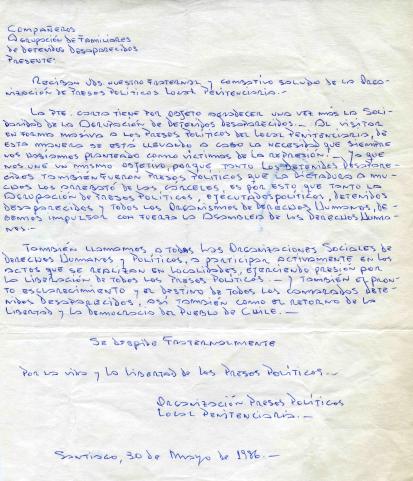 Compañeros
Agrupación de Familiares
de Detenidos Desaparecidos
Presente.
Reciban Uds. nuestro fraternal y combativo saludo de la Orga-
nización de Presos Políticos Local Penitenciaria.-
La pte. carta tiene por objeto agradecer una vez más la Soli-
daridad de la Agrupación de Detenidos Desaparecidos.- Al visitar
en forma masiva a los Presos Políticos del Local Penitenciaria, de
esta manera se está llevando a cabo la necesidad que siempre
nos habíamos planteado como víctimas de la represión.- Ya que
nos une un mismo objetivo, porque tanto los Detenidos Desapare-
cidos también fueron Presos Políticos que la Dictadura a mu-
chos los arrebató de las cárceles, es por esto que tanto la
Agrupación de Presos Políticos, Ejecutados Políticos, Detenidos
Desaparecidos y todos los Organismos de Derechos Humanos, de-
bemos impulsar con fuerza la Asamblea de los Derechos Huma-
nos.-
También llamamos, a todas las Organizaciones Sociales de
Derechos Humanos y Políticos, a participar activamente en los
actos que se realizan en localidades, ejerciendo presión por
la liberación de todos los Presos Políticos.- Y también el pron-
to esclarecimiento y el destino de todos los compañeros dete-
nidos desaparecidos, así también como el retorno de la
Libertad y la Democracia del Pueblo de Chile.-
Se despide Fraternalmente
Por la vida y la Libertad de los Presos Políticos.-
Organización Presos Políticos
Local Penitenciaria.-
Santiago, 30 de Mayo de 1986.-